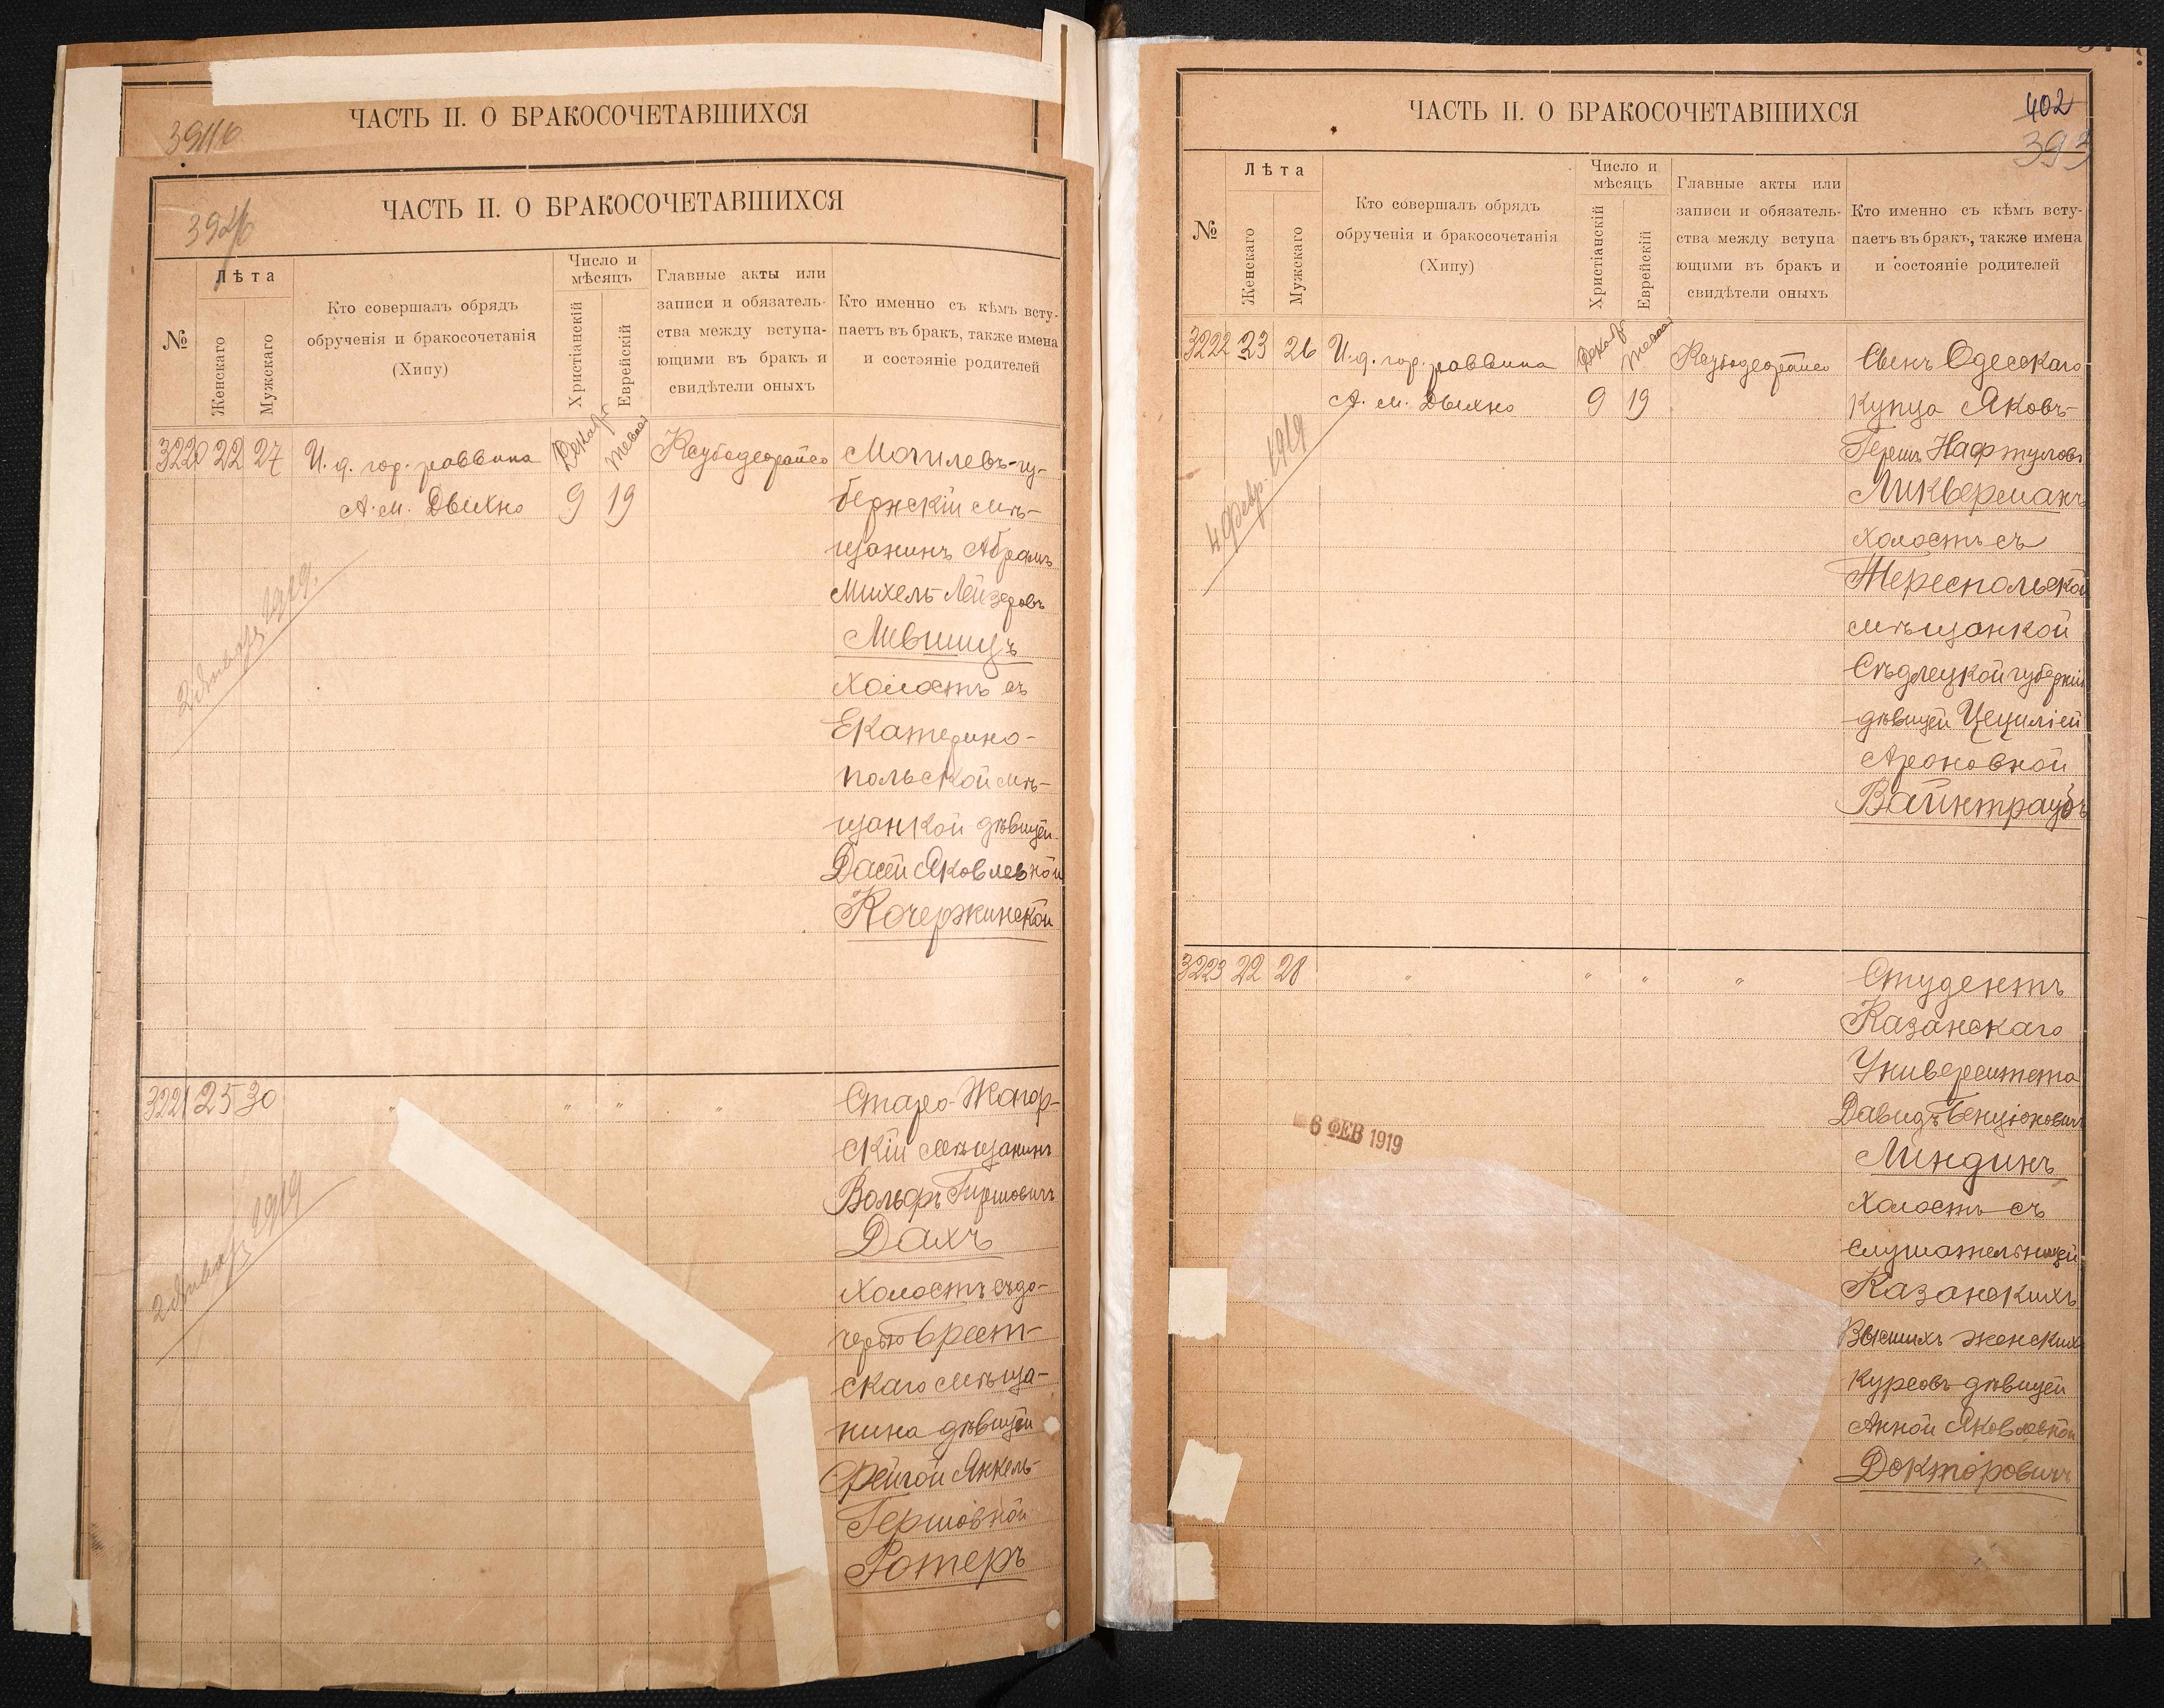 391б
ЧАСТЬ II. О БРАКОСОЧЕТАВШИХСЯ
392б
ЧАСТЬ II. О БРАКОСОЧЕТАВШИХСЯ
№
Лѣта
Женскаго
Мужскаго
Кто совершалъ обрядъ
обрученія и бракосочетанія
(Хипу)
Число и
мѣсяцъ
Христіанскій
Еврейскій
Главные акты или
записи и обязатель-
ства между вступа-
ющими въ бракъ и
свидѣтели оныхъ
Кто именно съ кѣмъ всту-
паетъ въ бракъ, также имена
и состояніе родителей
3220 22 27
И. д. гор. раввина
А. М. Дыхно
Декабр
9
Тевеса
19
Ксубо дерайсо
Могилевъ-гу-
бернскій мѣ-
щанинъ Абрамъ
Михель-Лейзеровъ
Лившицъ
холостъ съ
Екатерино-
польской мѣ-
щанкой дѣвицей
Дасей Яковлевной
Кочержинской
2 Января 1919.
3221 25 30
" " " "
Старо-Жагор-
скій мѣщанинъ
Вольфъ Гиршовичъ
Дахъ
холостъ съ до-
черью Брест-
скаго мѣща-
нина дѣвицей
Фейгой Янкель-
Гершовной
Ротеръ
2 Января 1919
402
393
ЧАСТЬ II. О БРАКОСОЧЕТАВШИХСЯ
№
Лѣта
Женскаго
Мужскаго
Кто совершалъ обрядъ
обрученія и бракосочетанія
(Хипу)
Число и
мѣсяцъ
Христіанскій
Еврейскій
Главные акты или
записи и обязатель-
ства между вступа
ющими въ бракъ и
свидѣтели оныхъ
Кто именно съ кѣмъ всту-
паетъ въ бракъ, также имена
и состояніе родителей
3222 23 26
И. д. гор. раввина
А. М. Дыхно
Декабр
9
Тевеса
19
Ксубо дерайсо
Сынъ Одесскаго
купца Яковъ-
Гершъ Нафтуловъ
Ликверманъ
холостъ съ
Тереспольской
мѣщанкой
Сѣдлецкой губерніи
дѣвицей Цециліей
Ароновной
Вайнтраубъ
4 Февр. 1919
3223 22 28
" " " "
Студентъ
Казанскаго
Университета
Давидъ Бенціоновичъ
Линдинъ
холостъ съ
слушательницей
Казанскихъ
Высшихъ женскихъ
курсовъ дѣвицей
Анной Яковлевной
Докторовичъ
6 ФЕВ 1919